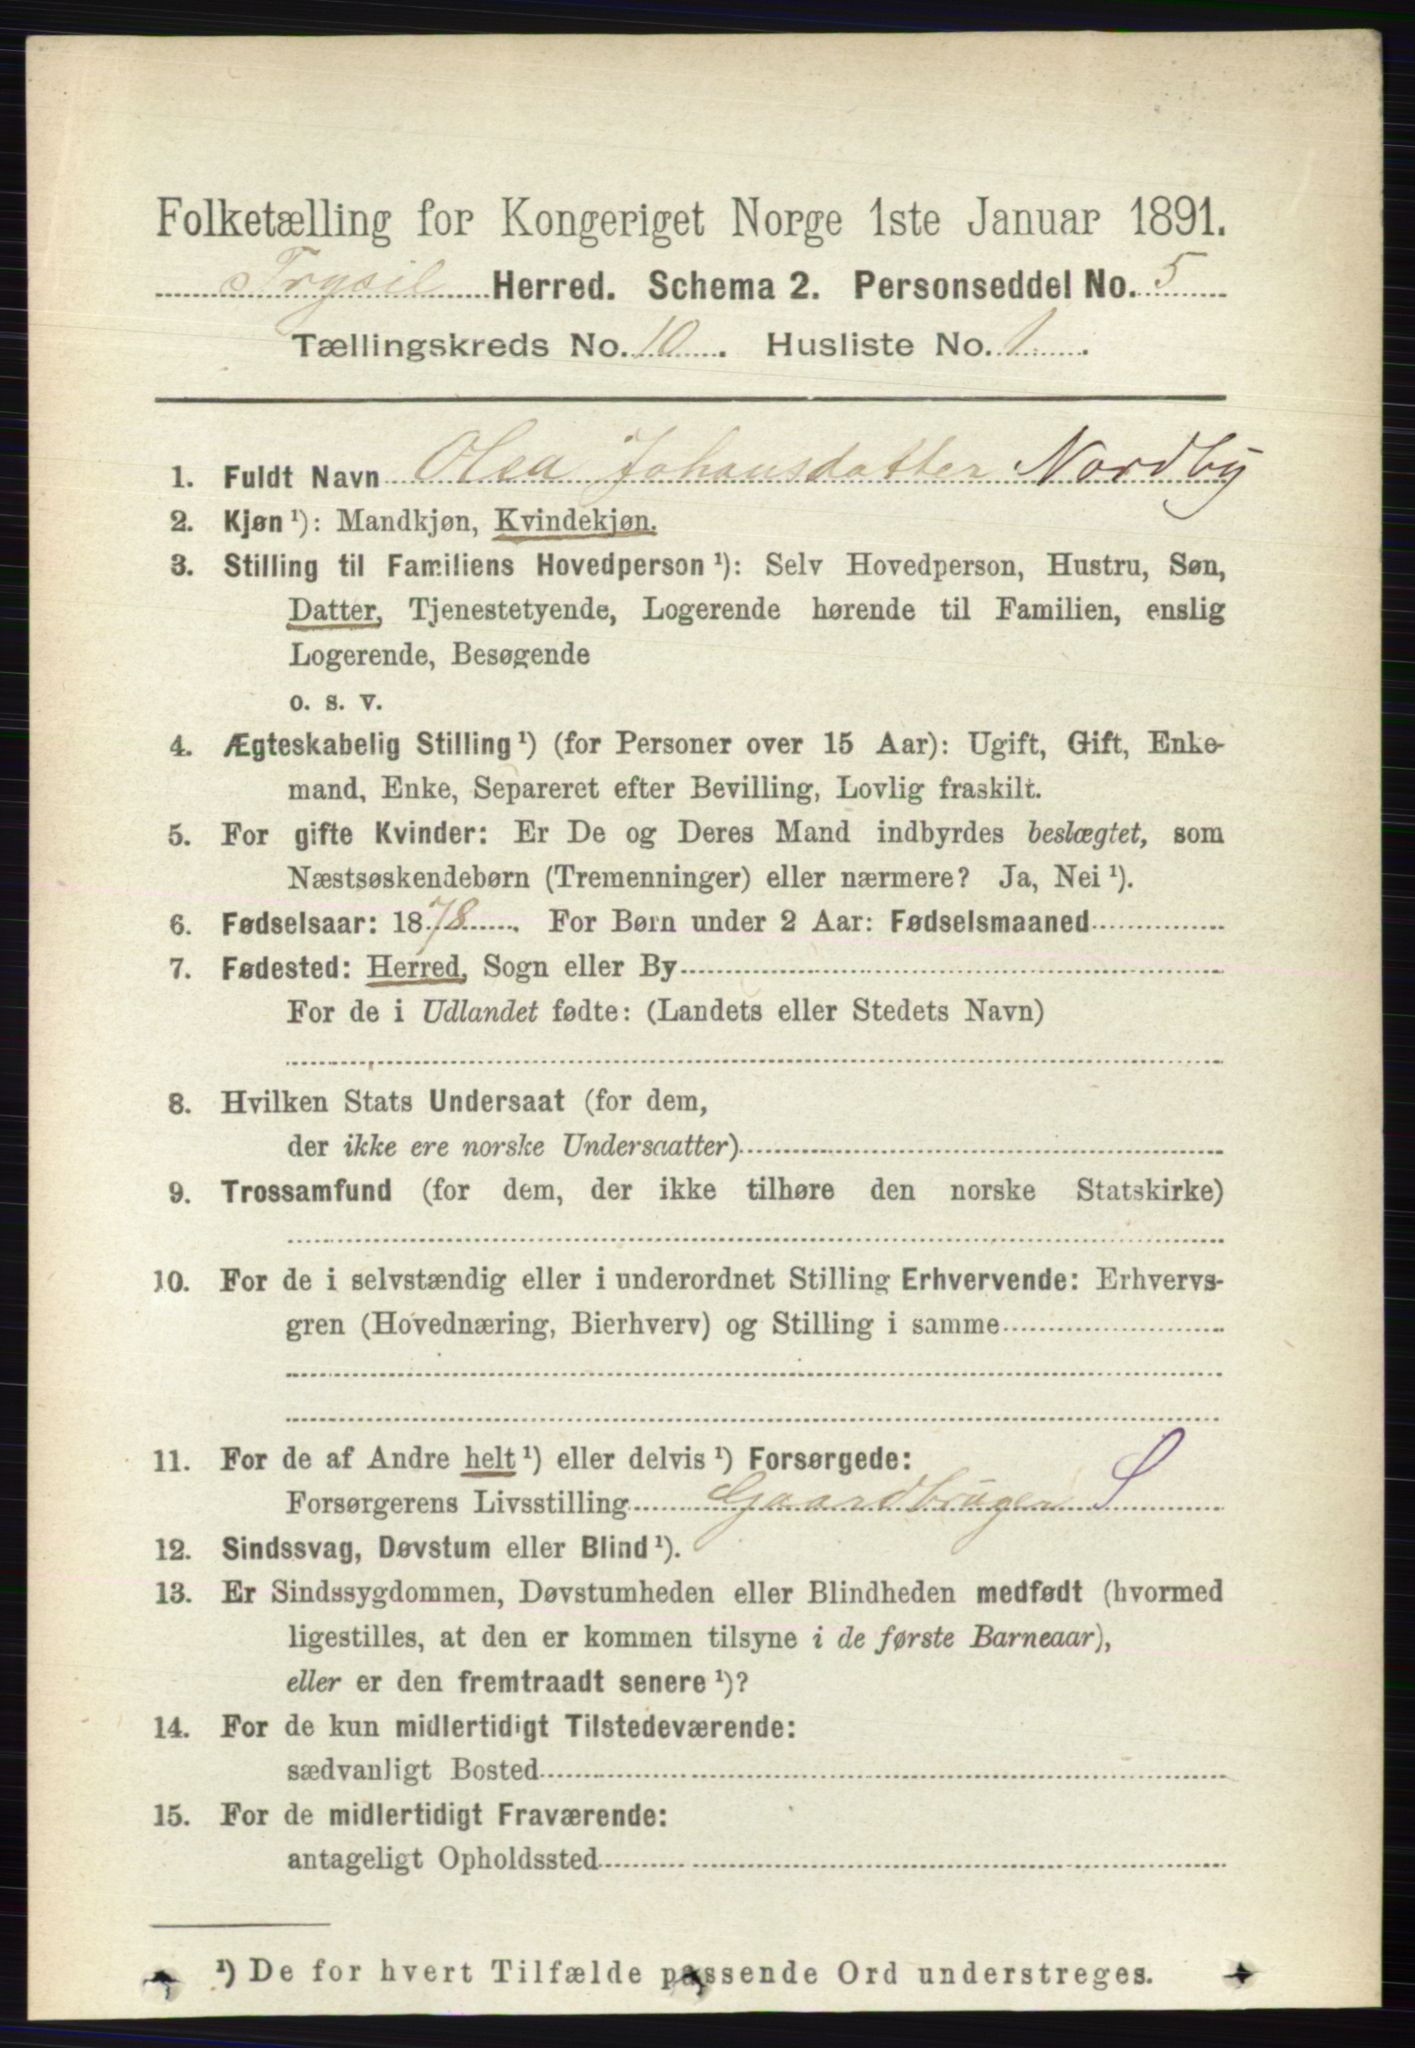 Folketælling for Kongeriget Norge 1ste Januar 1891.
Trysil Herred. Schema 2. Personseddel No. 5
Tællingskreds No. 10. Husliste No. 1.
1. Fuldt Navn Olea Johansdatter Nordby
2. Kjøn ¹): Mandkjøn, Kvindekjøn.
3. Stilling til Familiens Hovedperson ¹): Selv Hovedperson, Hustru, Søn,
Datter, Tjenestetyende, Logerende hørende til Familien, enslig
Logerende, Besøgende
o. s. v.
4. Ægteskabelig Stilling ¹) (for Personer over 15 Aar): Ugift, Gift, Enke-
mand, Enke, Separeret efter Bevilling, Lovlig fraskilt.
5. For gifte Kvinder: Er De og Deres Mand indbyrdes beslægtet, som
Næstsøskendebørn (Tremenninger) eller nærmere? Ja, Nei ¹).
6. Fødselsaar: 1878. For Børn under 2 Aar: Fødselsmaaned
7. Fødested: Herred, Sogn eller By
For de i Udlandet fødte: (Landets eller Stedets Navn)
8. Hvilken Stats Undersaat (for dem,
der ikke ere norske Undersaatter)
9. Trossamfund (for dem, der ikke tilhøre den norske Statskirke)
10. For de i selvstændig eller i underordnet Stilling Erhvervende: Erhvervs-
gren (Hovednæring, Bierhverv) og Stilling i samme
11. For de af Andre helt ¹) eller delvis ¹) Forsørgede:
Forsørgerens Livsstilling Gaardbruger S
12. Sindssvag, Døvstum eller Blind ¹).
13. Er Sindssygdommen, Døvstumheden eller Blindheden medfødt (hvormed
ligestilles, at den er kommen tilsyne i de første Barneaar),
eller er den fremtraadt senere ¹)?
14. For de kun midlertidigt Tilstedeværende:
sædvanligt Bosted
15. For de midlertidigt Fraværende:
antageligt Opholdssted
¹) De for hvert Tilfælde passende Ord understreges.